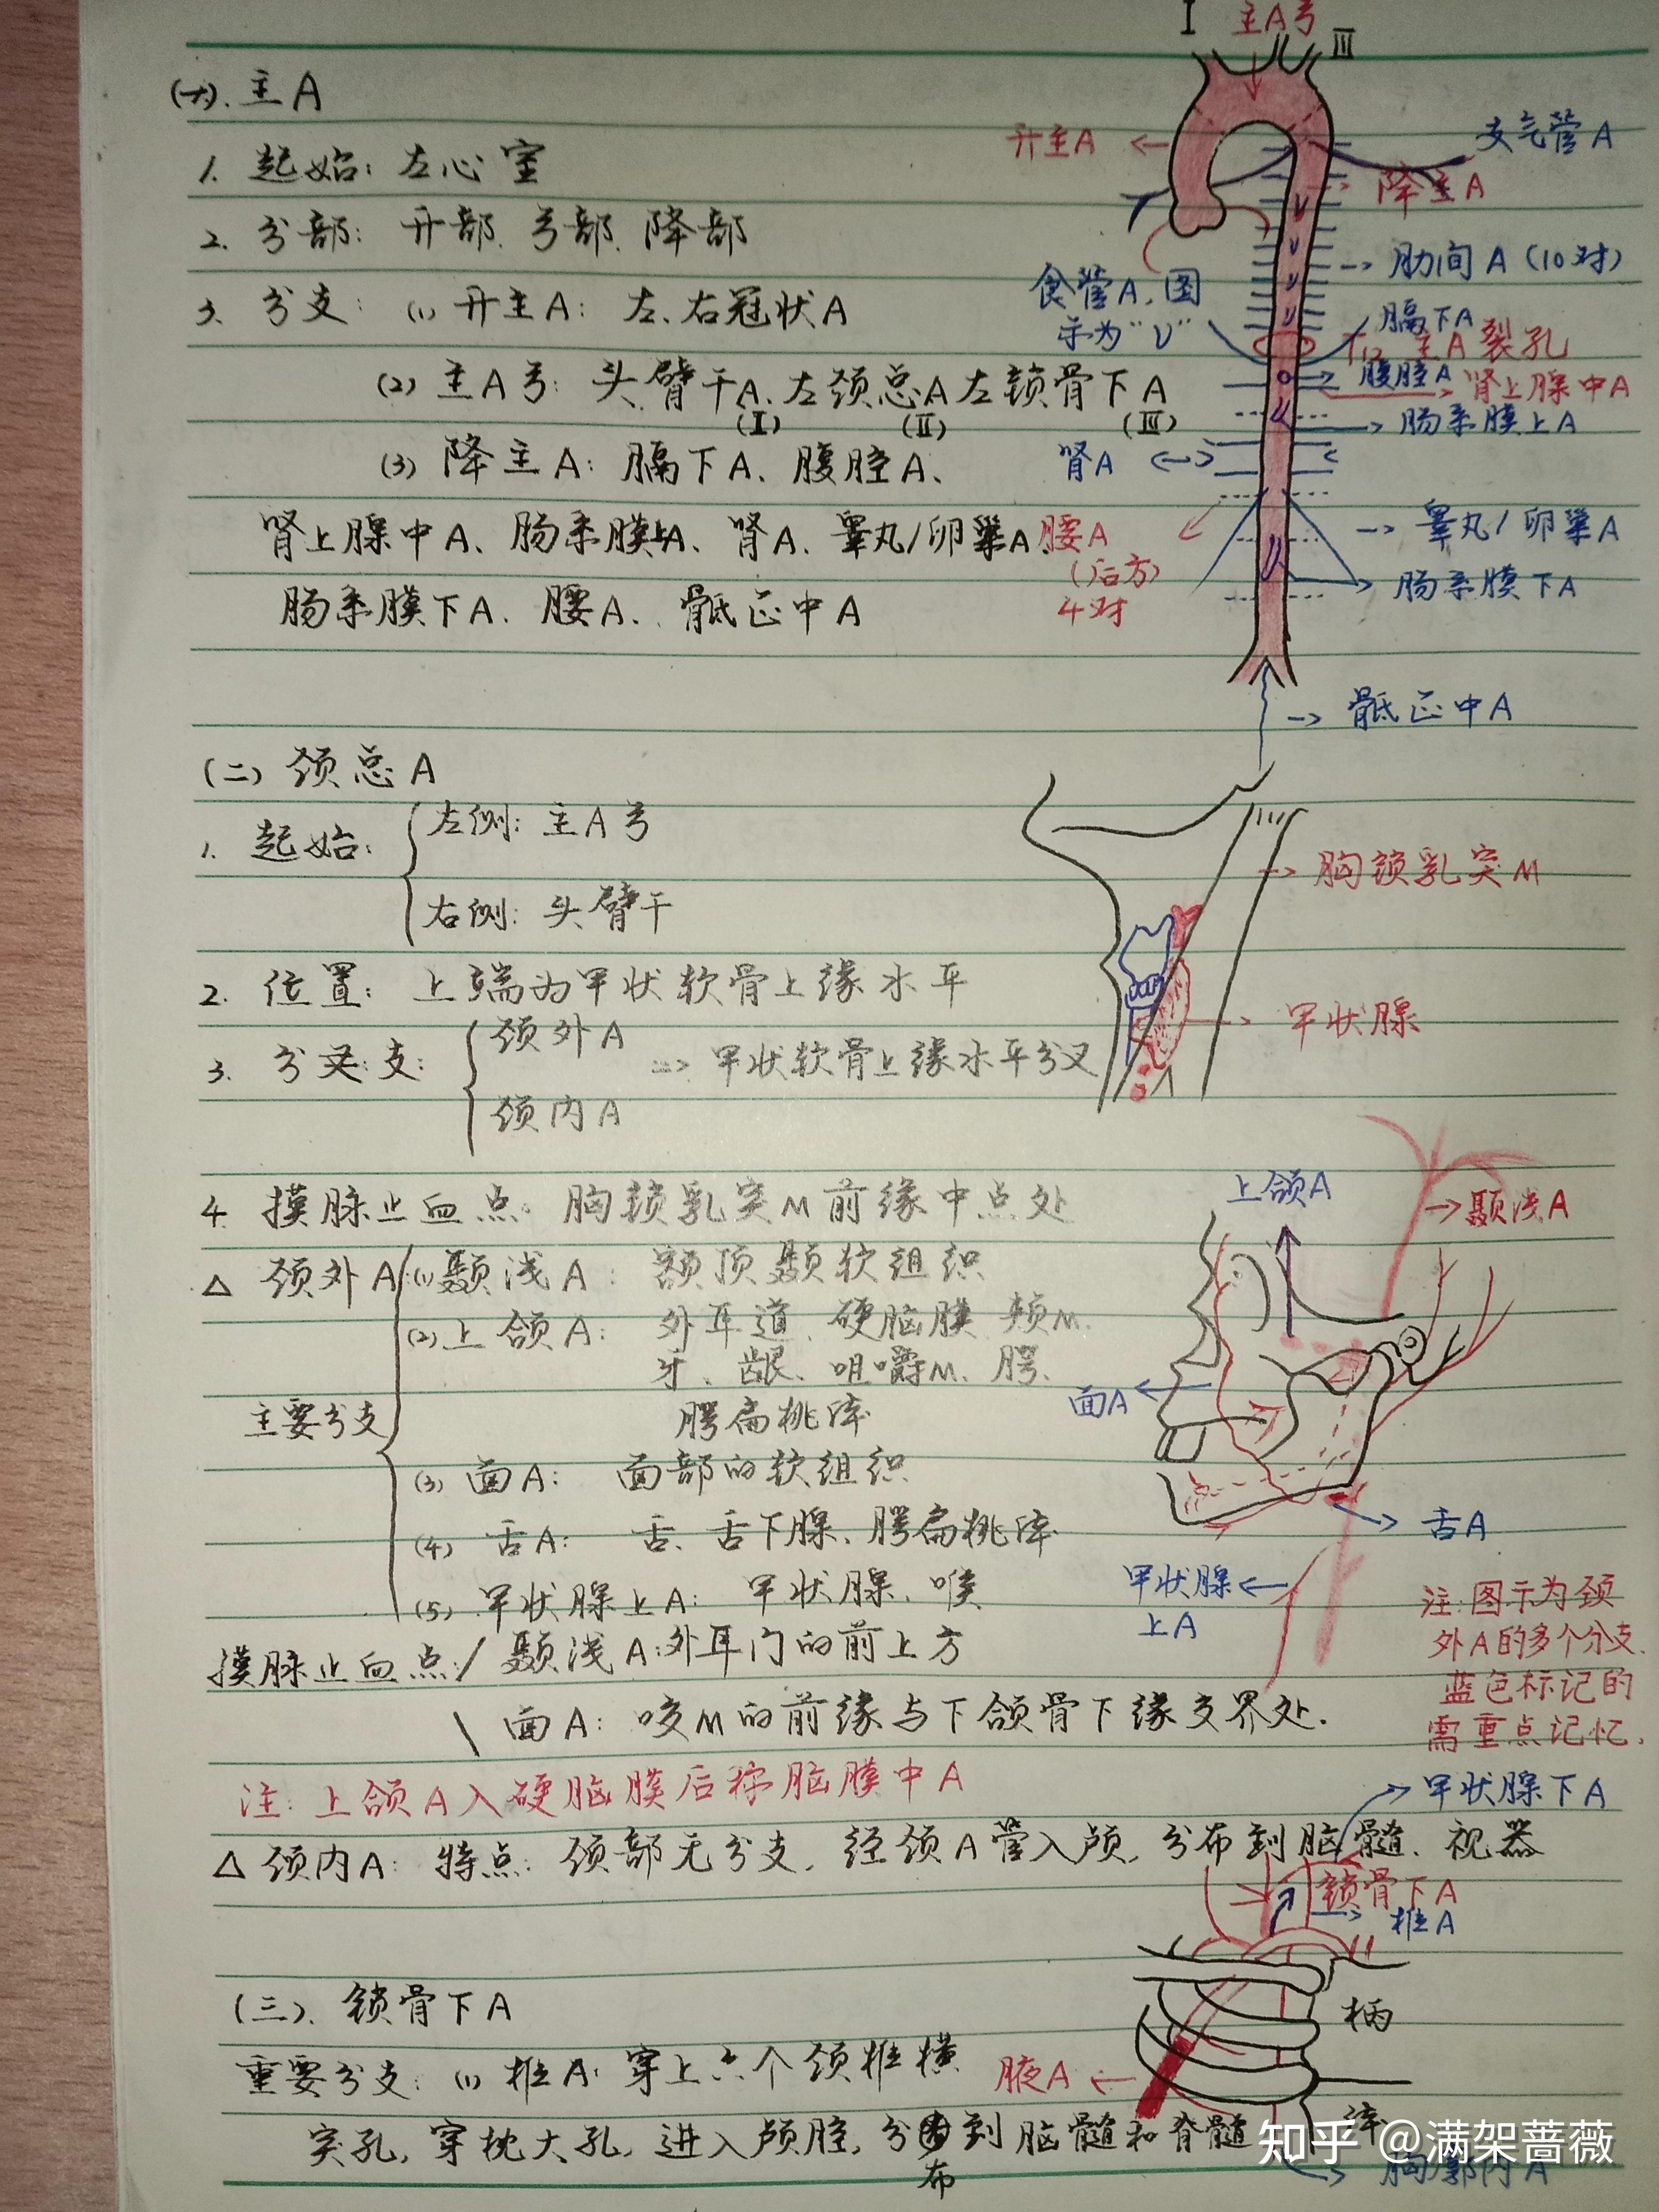 I 主A弓 III
(一). 主A
升主A
支气管A
1. 起始: 左心室
降主A
2. 分部: 升部、弓部、降部
肋间A (10对)
食管A, 图
示为"ν"
3. 分支: (1) 升主A: 左、右冠状A
膈下A
T12 主A裂孔
腹腔A
肾上腺中A
(2) 主A弓: 头臂干A、左颈总A 左锁骨下A
(I) (II) (III)
肠系膜上A
(3) 降主A: 膈下A、腹腔A、
肾A
肾上腺中A、肠系膜上A、肾A、睾丸/卵巢A、
腰A
(后方)
4对
睾丸/卵巢A
肠系膜下A
肠系膜下A、腰A、骶正中A
骶正中A
(二) 颈总A
1. 起始: 左侧: 主A弓
右侧: 头臂干
胸锁乳突M
2. 位置: 上端为甲状软骨上缘水平
甲状腺
3. 分支: 颈外A
颈内A
=> 甲状软骨上缘水平分叉
4. 摸脉止血点: 胸锁乳突M前缘中点处
上颌A
颞浅A
△ 颈外A (1) 颞浅A: 额顶颞软组织
(2) 上颌A: 外耳道、硬脑膜 颊M、
牙、龈、咀嚼M、腭、
腭扁桃体
面A
主要分支
(3) 面A: 面部的软组织
(4) 舌A: 舌、舌下腺、腭扁桃体
舌A
(5) 甲状腺上A: 甲状腺、喉
甲状腺
上A
注: 图示为颈
外A的多个分支.
蓝色标记的
需重点记忆.
摸脉止血点: 颞浅A: 外耳门的前上方
面A: 咬M的前缘与下颌骨下缘交界处.
注: 上颌A入硬脑膜后称脑膜中A
甲状腺下A
△ 颈内A: 特点: 颈部无分支, 经颈A管入颅, 分布到脑髓、视器
锁骨下A
椎A
(三). 锁骨下A
柄
重要分支: (1) 椎A: 穿上六个颈椎横
腋A
突孔, 穿枕大孔, 进入颅腔, 分布到脑髓和脊髓
体
胸廓内A
知乎 @满架蔷薇